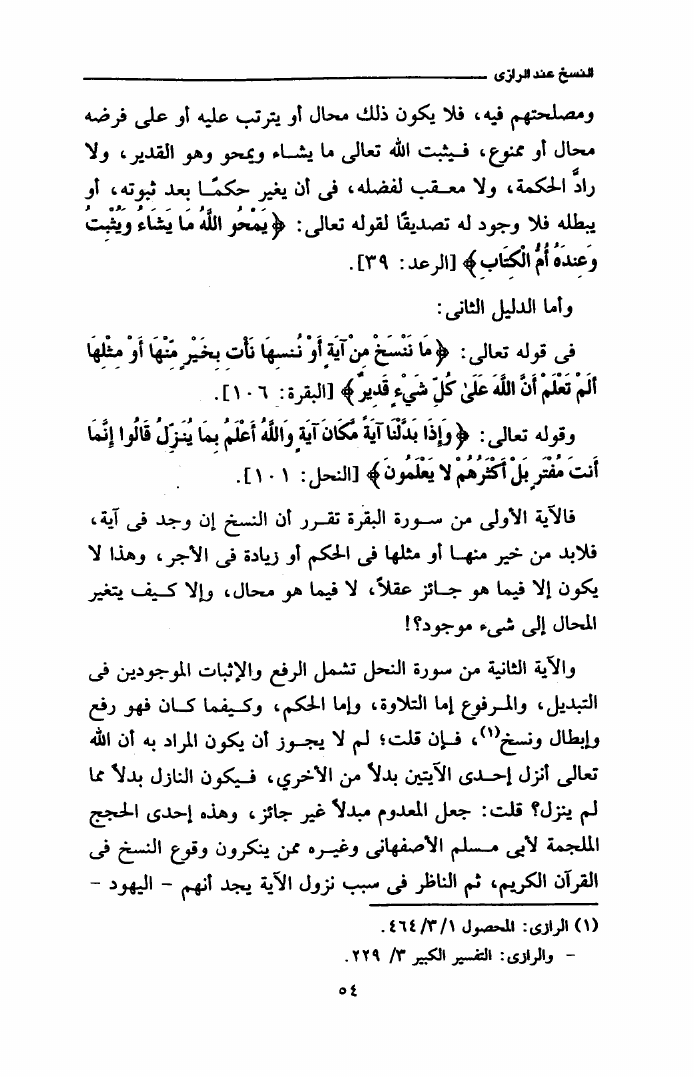 النسخ عند الرازى
ومصلحتهم فيه، فلا يكون ذلك محال أو يترتب عليه أو على فرضه
محال أو ممنوع، فيثبت الله تعالى ما يشاء ويمحو وهو القدير، ولا
رادَّ الحكمة، ولا معقب لفضله، فى أن يغير حكمًا بعد ثبوته، أو
يبطله فلا وجود له تصديقًا لقوله تعالى: ﴿يَمْحُو اللَّهُ مَا يَشَاءُ وَيُثْبِتُ
وَعِندَهُ أُمُّ الْكِتَابِ﴾ [الرعد: ٣٩].
وأما الدليل الثانى:
فى قوله تعالى: ﴿مَا نَنْسَخْ مِنْ آيَةٍ أَوْ نُنسِهَا نَأْتِ بِخَيْرٍ مِّنْهَا أَوْ مِثْلِهَا
أَلَمْ تَعْلَمْ أَنَّ اللَّهَ عَلَىٰ كُلِّ شَيْءٍ قَدِيرٌ﴾ [البقرة: ١٠٦].
وقوله تعالى: ﴿وَإِذَا بَدَّلْنَا آيَةً مَّكَانَ آيَةٍ وَاللَّهُ أَعْلَمُ بِمَا يُنَزِّلُ قَالُوا إِنَّمَا
أَنتَ مُفْتَرٍ بَلْ أَكْثَرُهُمْ لا يَعْلَمُونَ﴾ [النحل: ١٠١].
فالآية الأولى من سورة البقرة تقرر أن النسخ إن وجد فى آية،
فلابد من خير منها أو مثلها فى الحكم أو زيادة فى الأجر، وهذا لا
يكون إلا فيما هو جائز عقلاً، لا فيما هو محال، وإلا كيف يتغير
المحال إلى شىء موجود؟!
والآية الثانية من سورة النحل تشمل الرفع والإثبات الموجودين فى
التبديل، والمرفوع إما التلاوة، وإما الحكم، وكيفما كان فهو رفع
وإبطال ونسخ(١)، فإن قلت؛ لم لا يجوز أن يكون المراد به أن الله
تعالى أنزل إحدى الآيتين بدلاً من الأخري، فيكون النازل بدلاً مما
لم ينزل؟ قلت: جعل المعدوم مبدلاً غير جائز، وهذه إحدى الحجج
الملجمة لأبى مسلم الأصفهانى وغيره ممن ينكرون وقوع النسخ فى
القرآن الكريم، ثم الناظر فى سبب نزول الآية يجد أنهم - اليهود -
(١) الرازى: المحصول ٤٦٤/٣/١.
- والرازى: التفسير الكبير ٣/ ٢٢٩.
٥٤